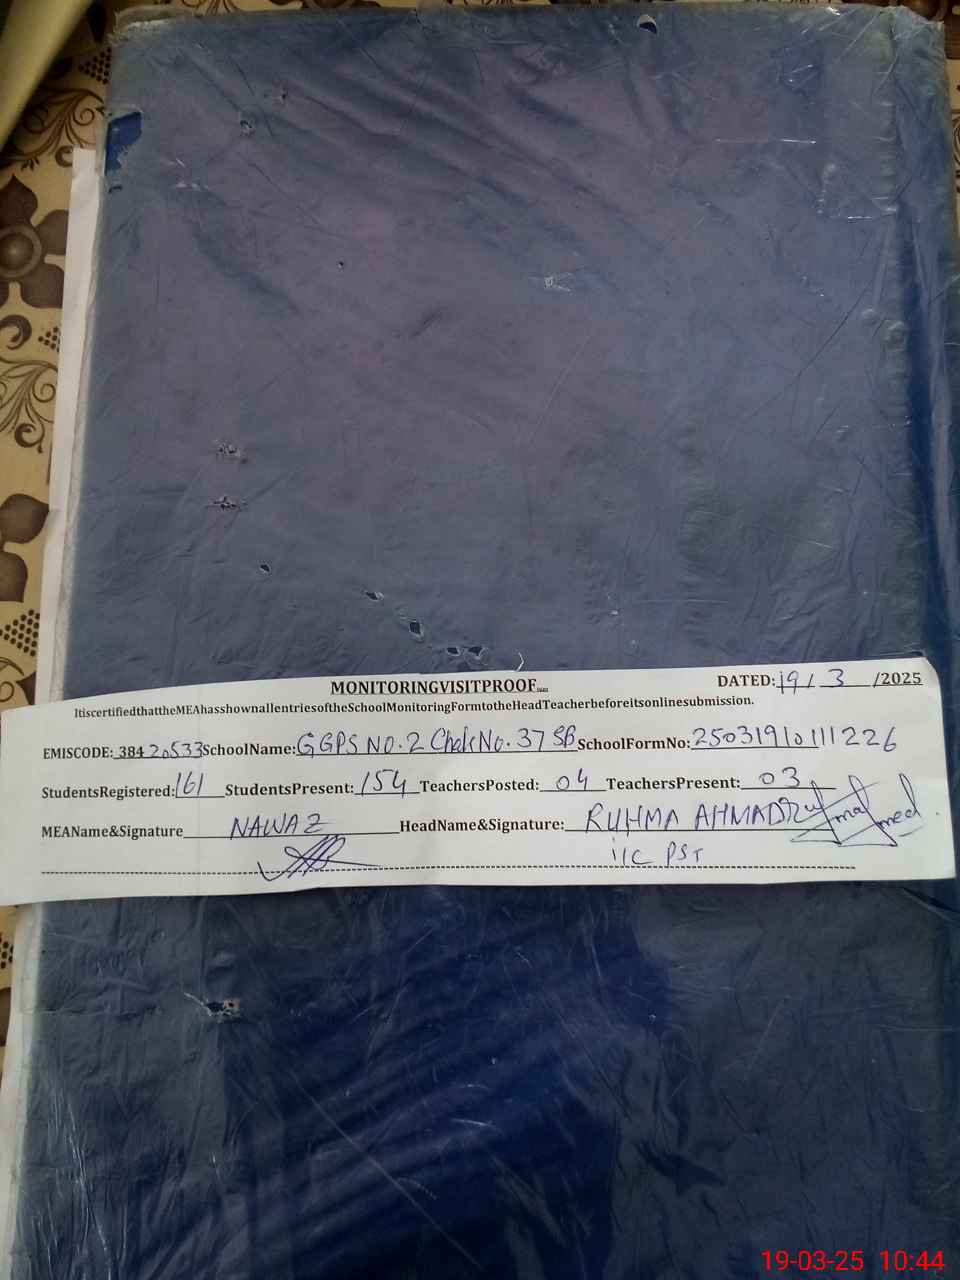 MONITORINGVISITPROOF
DATED: 19 / 3 /2025
ItiscertifiedthattheMEAhasshownallentriesoftheSchoolMonitoringFormtotheHeadTeacherbeforeitsonlinesubmission.
EMISCODE: 38420533 SchoolName: GGPS NO. 2 Chak No. 37 SB SchoolFormNo: 25031910111226
StudentsRegistered: 161 StudentsPresent: 154 TeachersPosted: 04 TeachersPresent: 03
MEAName&Signature NAWAZ HeadName&Signature: RUHMA AHMAD
i/c PST
19-03-25 10:44